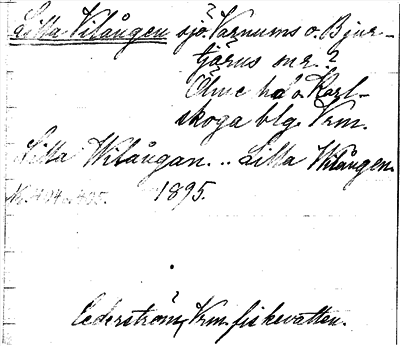 Lilla Vilången sjö? Varnums o. Bjur-
tjärns snr. ?
Ölme hd o. Karl-
skoga blg. Vrm.
Lilla Wilångan. .. Lilla Wilången.
Nr. 404 o. 405. 1895.
Cederström, Vrm. fiskevatten.